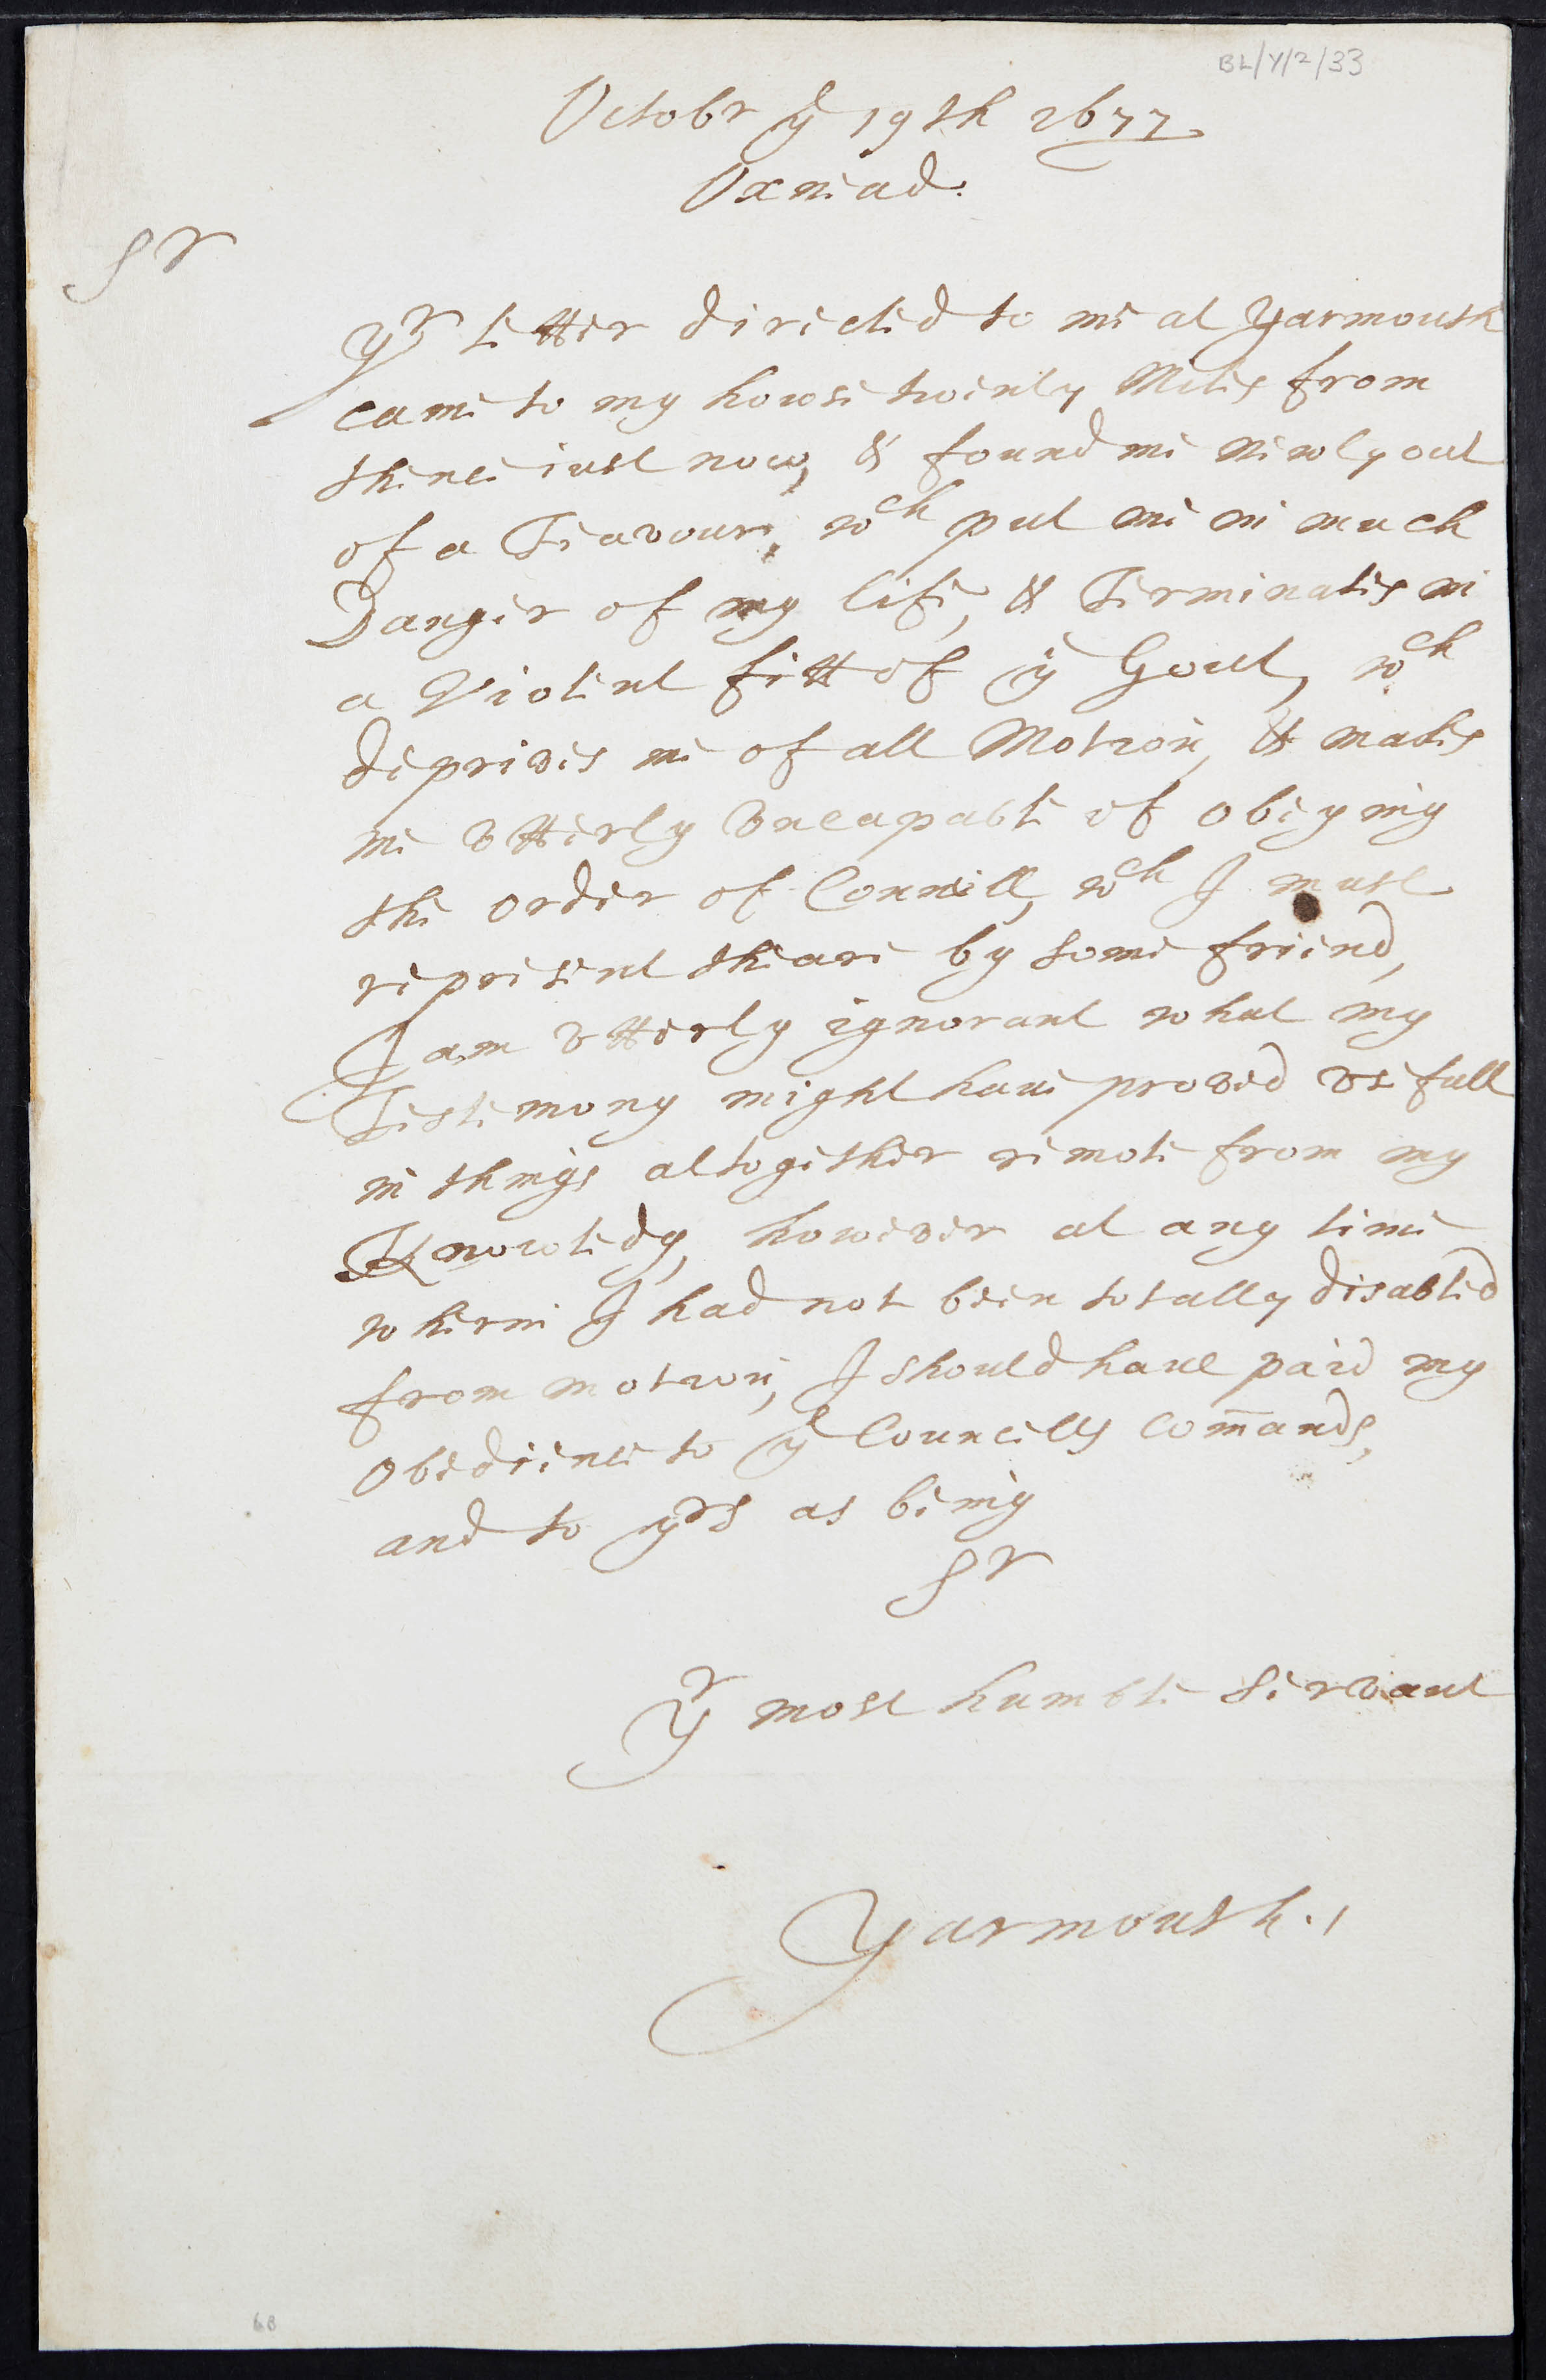 BL/Y/2/33
Octobr ye 19th 1677
Oxnead.
Sr
Yr letter directed to me at Yarmouth
came to my howse twenty Miles from
thence iust now, & found me newly out
of a Feavour, wch put me in much
Danger of my life, & Terminates in
a Violent fitt of ye Gout, wch
deprives me of all Motion, & makes
me vtterly vncapable of obeying
the order of Councill, wch I must
represent theare by some friend,
I am vtterly ignorant what my
Testemony might have proved vsefull
in things altogether remote from my
Knowledg, however at any time
wherin I had not been totally disabled
from motion, I should have paid my
obedience to ye Councills com̅ands,
and to yrs as being
Sr
Yr most humble Servant
Yarmouth.
68